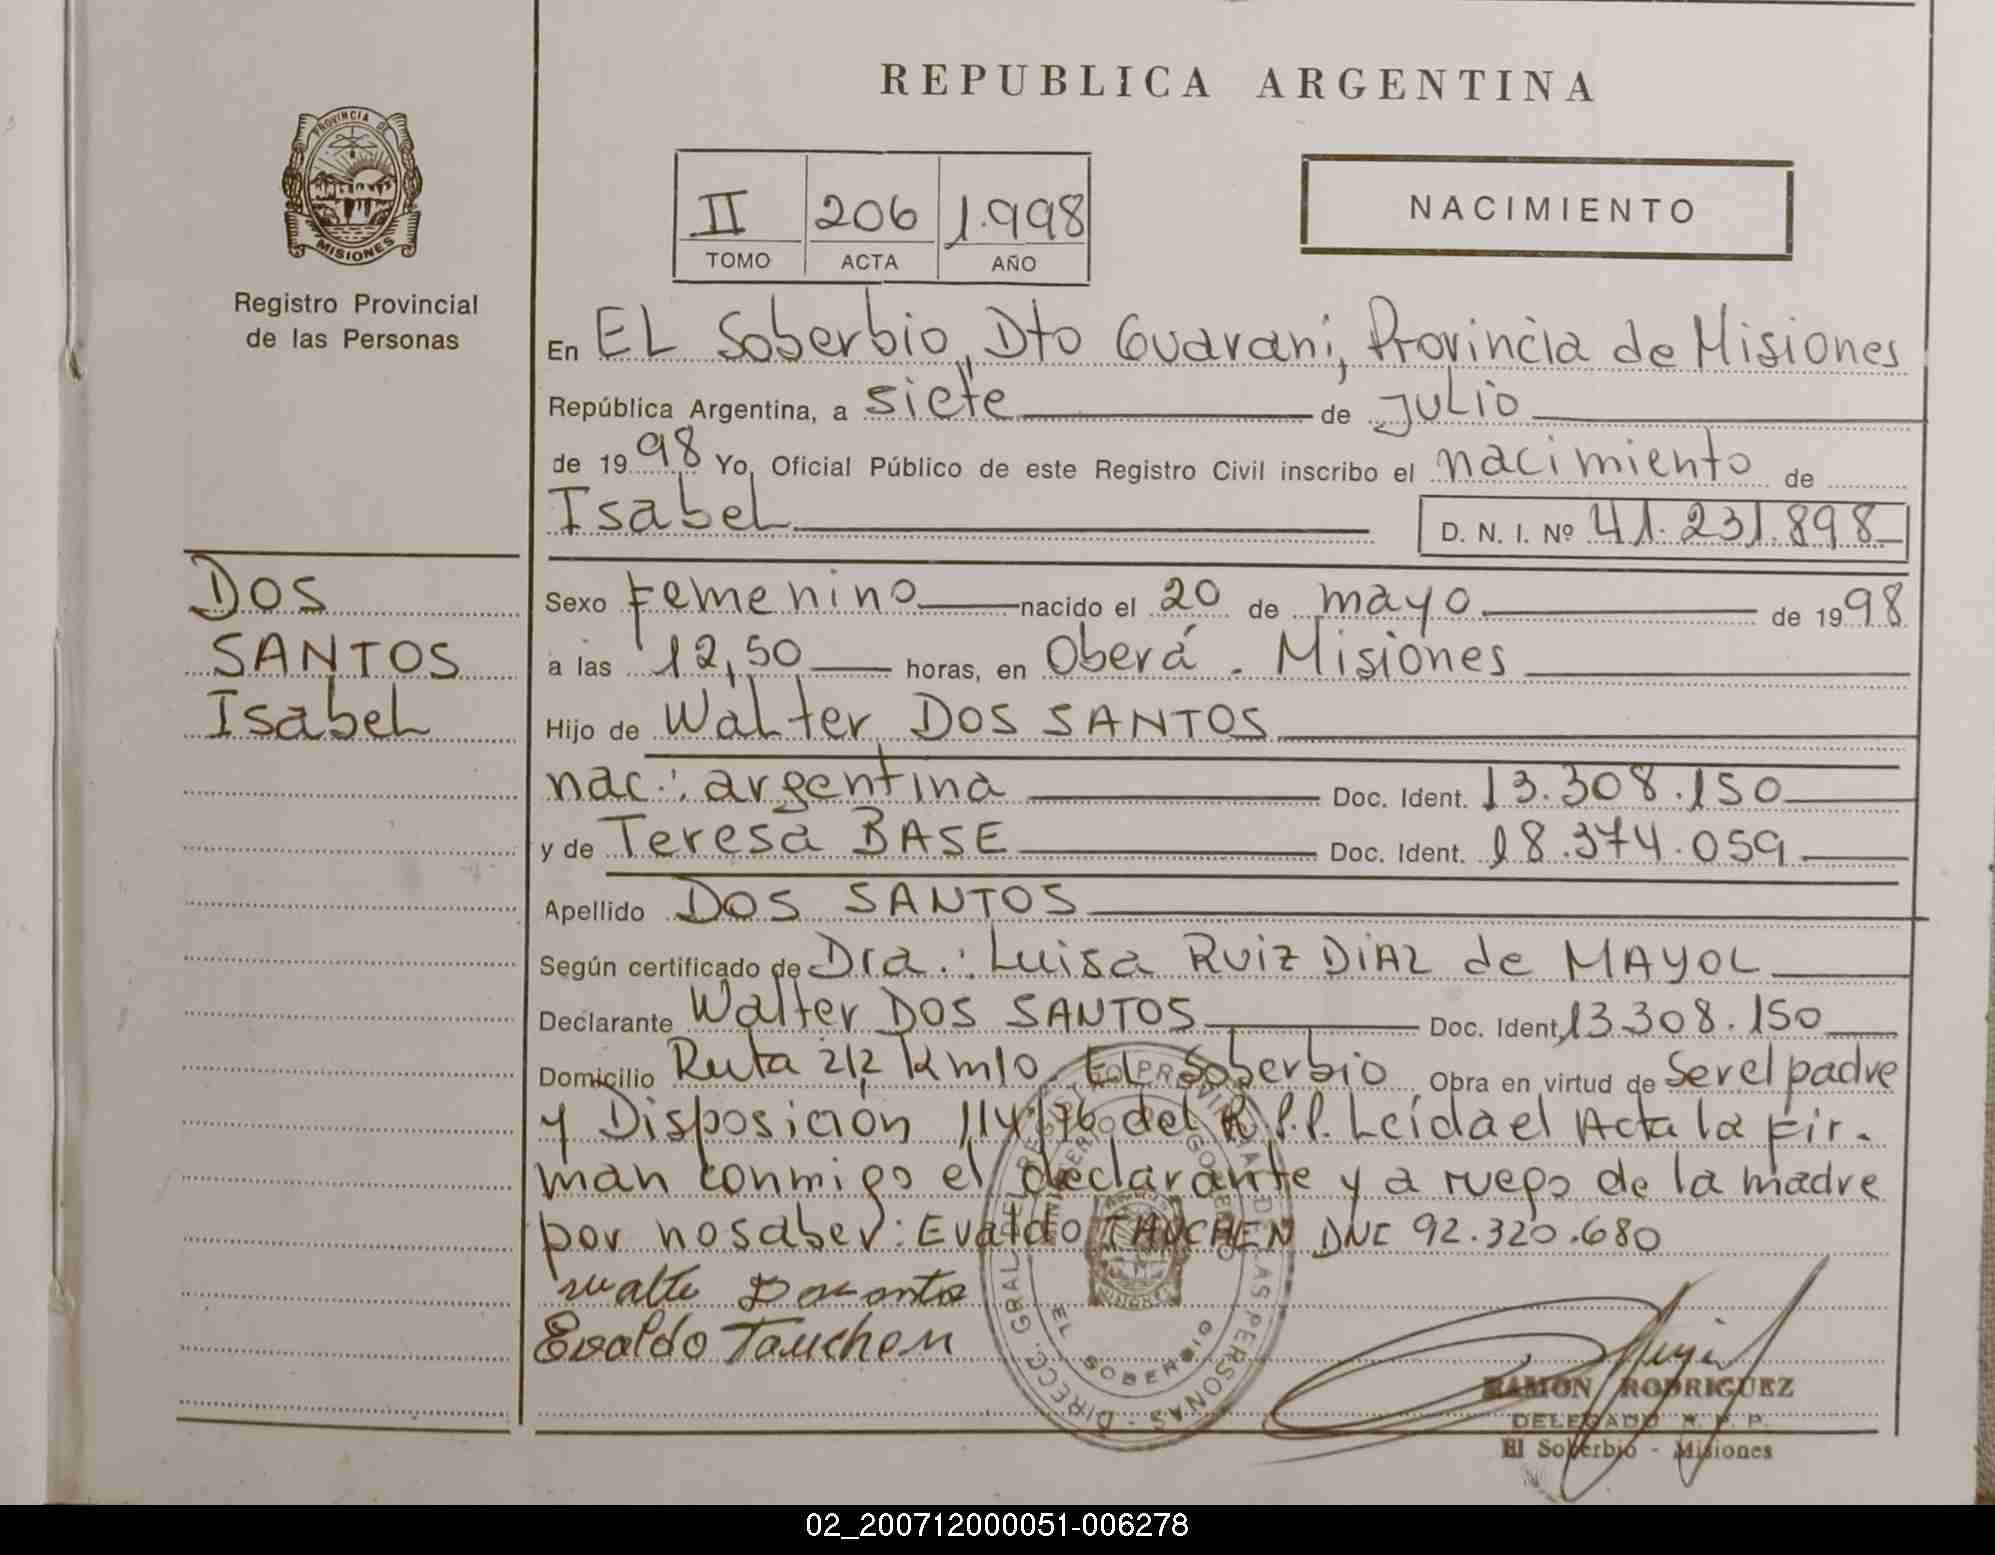 REPUBLICA ARGENTINA
PROVINCIA DE MISIONES
Registro Provincial
de las Personas
II 206 1.998
TOMO ACTA AÑO
NACIMIENTO
En EL Soberbio, Dto Guaraní, Provincia de Misiones
República Argentina, a siete de JULIO
de 1998 Yo, Oficial Público de este Registro Civil inscribo el nacimiento de
Isabel D. N. I. Nº 41.231.898
DOS
SANTOS
Isabel
Sexo Femenino nacido el 20 de mayo de 1998
a las 12,50 horas, en Oberá - Misiones
Hijo de Walter DOS SANTOS
nac.: argentina Doc. Ident. 13.308.150
y de Teresa BASE Doc. Ident. 18.374.059
Apellido DOS SANTOS
Según certificado de Dra.: Luisa RUIZ DIAZ de MAYOL
Declarante Walter DOS SANTOS Doc. Ident. 13.308.150
Domicilio Ruta 212 Km10 EL Soberbio Obra en virtud de Ser el padre
y Disposición 114/76 del R.P.P. Leída el Acta la fir-
man conmigo el declarante y a ruego de la madre
por no saber: Evaldo TAUCHEN DNI 92.320.680
Evaldo Tauchen
DIRECC. GRAL. DEL REGISTRO PROVINCIAL DE LAS PERSONAS
EL SOBERBIO
RAMON RODRIGUEZ
DELEGADO R. P. P.
El Soberbio - Misiones
02_200712000051-006278